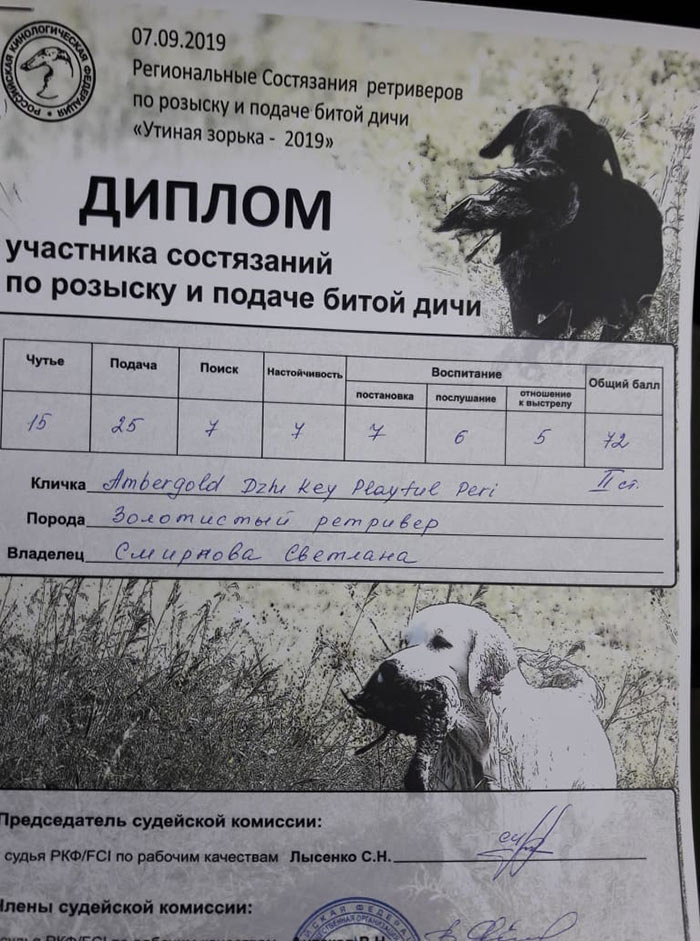 РОССИЙСКАЯ КИНОЛОГИЧЕСКАЯ ФЕДЕРАЦИЯ
07.09.2019
Региональные Состязания ретриверов
по розыску и подаче битой дичи
«Утиная зорька - 2019»
ДИПЛОМ
участника состязаний
по розыску и подаче битой дичи
Чутье Подача Поиск Настойчивость Воспитание Общий балл
постановка послушание отношение к выстрелу
15 25 7 7 7 6 5 72
Кличка Ambergold Dzhi Key Playful Peri II ст.
Порода Золотистый ретривер
Владелец Смирнова Светлана
Председатель судейской комиссии:
судья РКФ/FCI по рабочим качествам Лысенко С.Н.
Члены судейской комиссии: